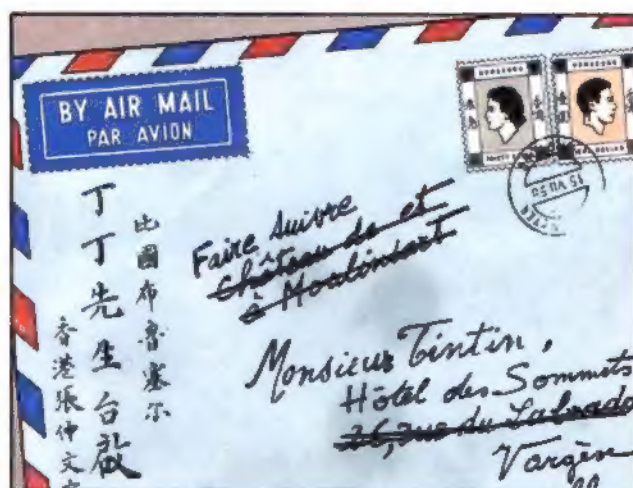 BY AIR MAIL
PAR AVION
丁丁先生台啟
比國布魯塞尔
香港張仲文
Faire suivre
Château de et
à Moulinsart
Monsieur Tintin,
Hôtel des Sommets
26, rue du Labrado
Vargèse